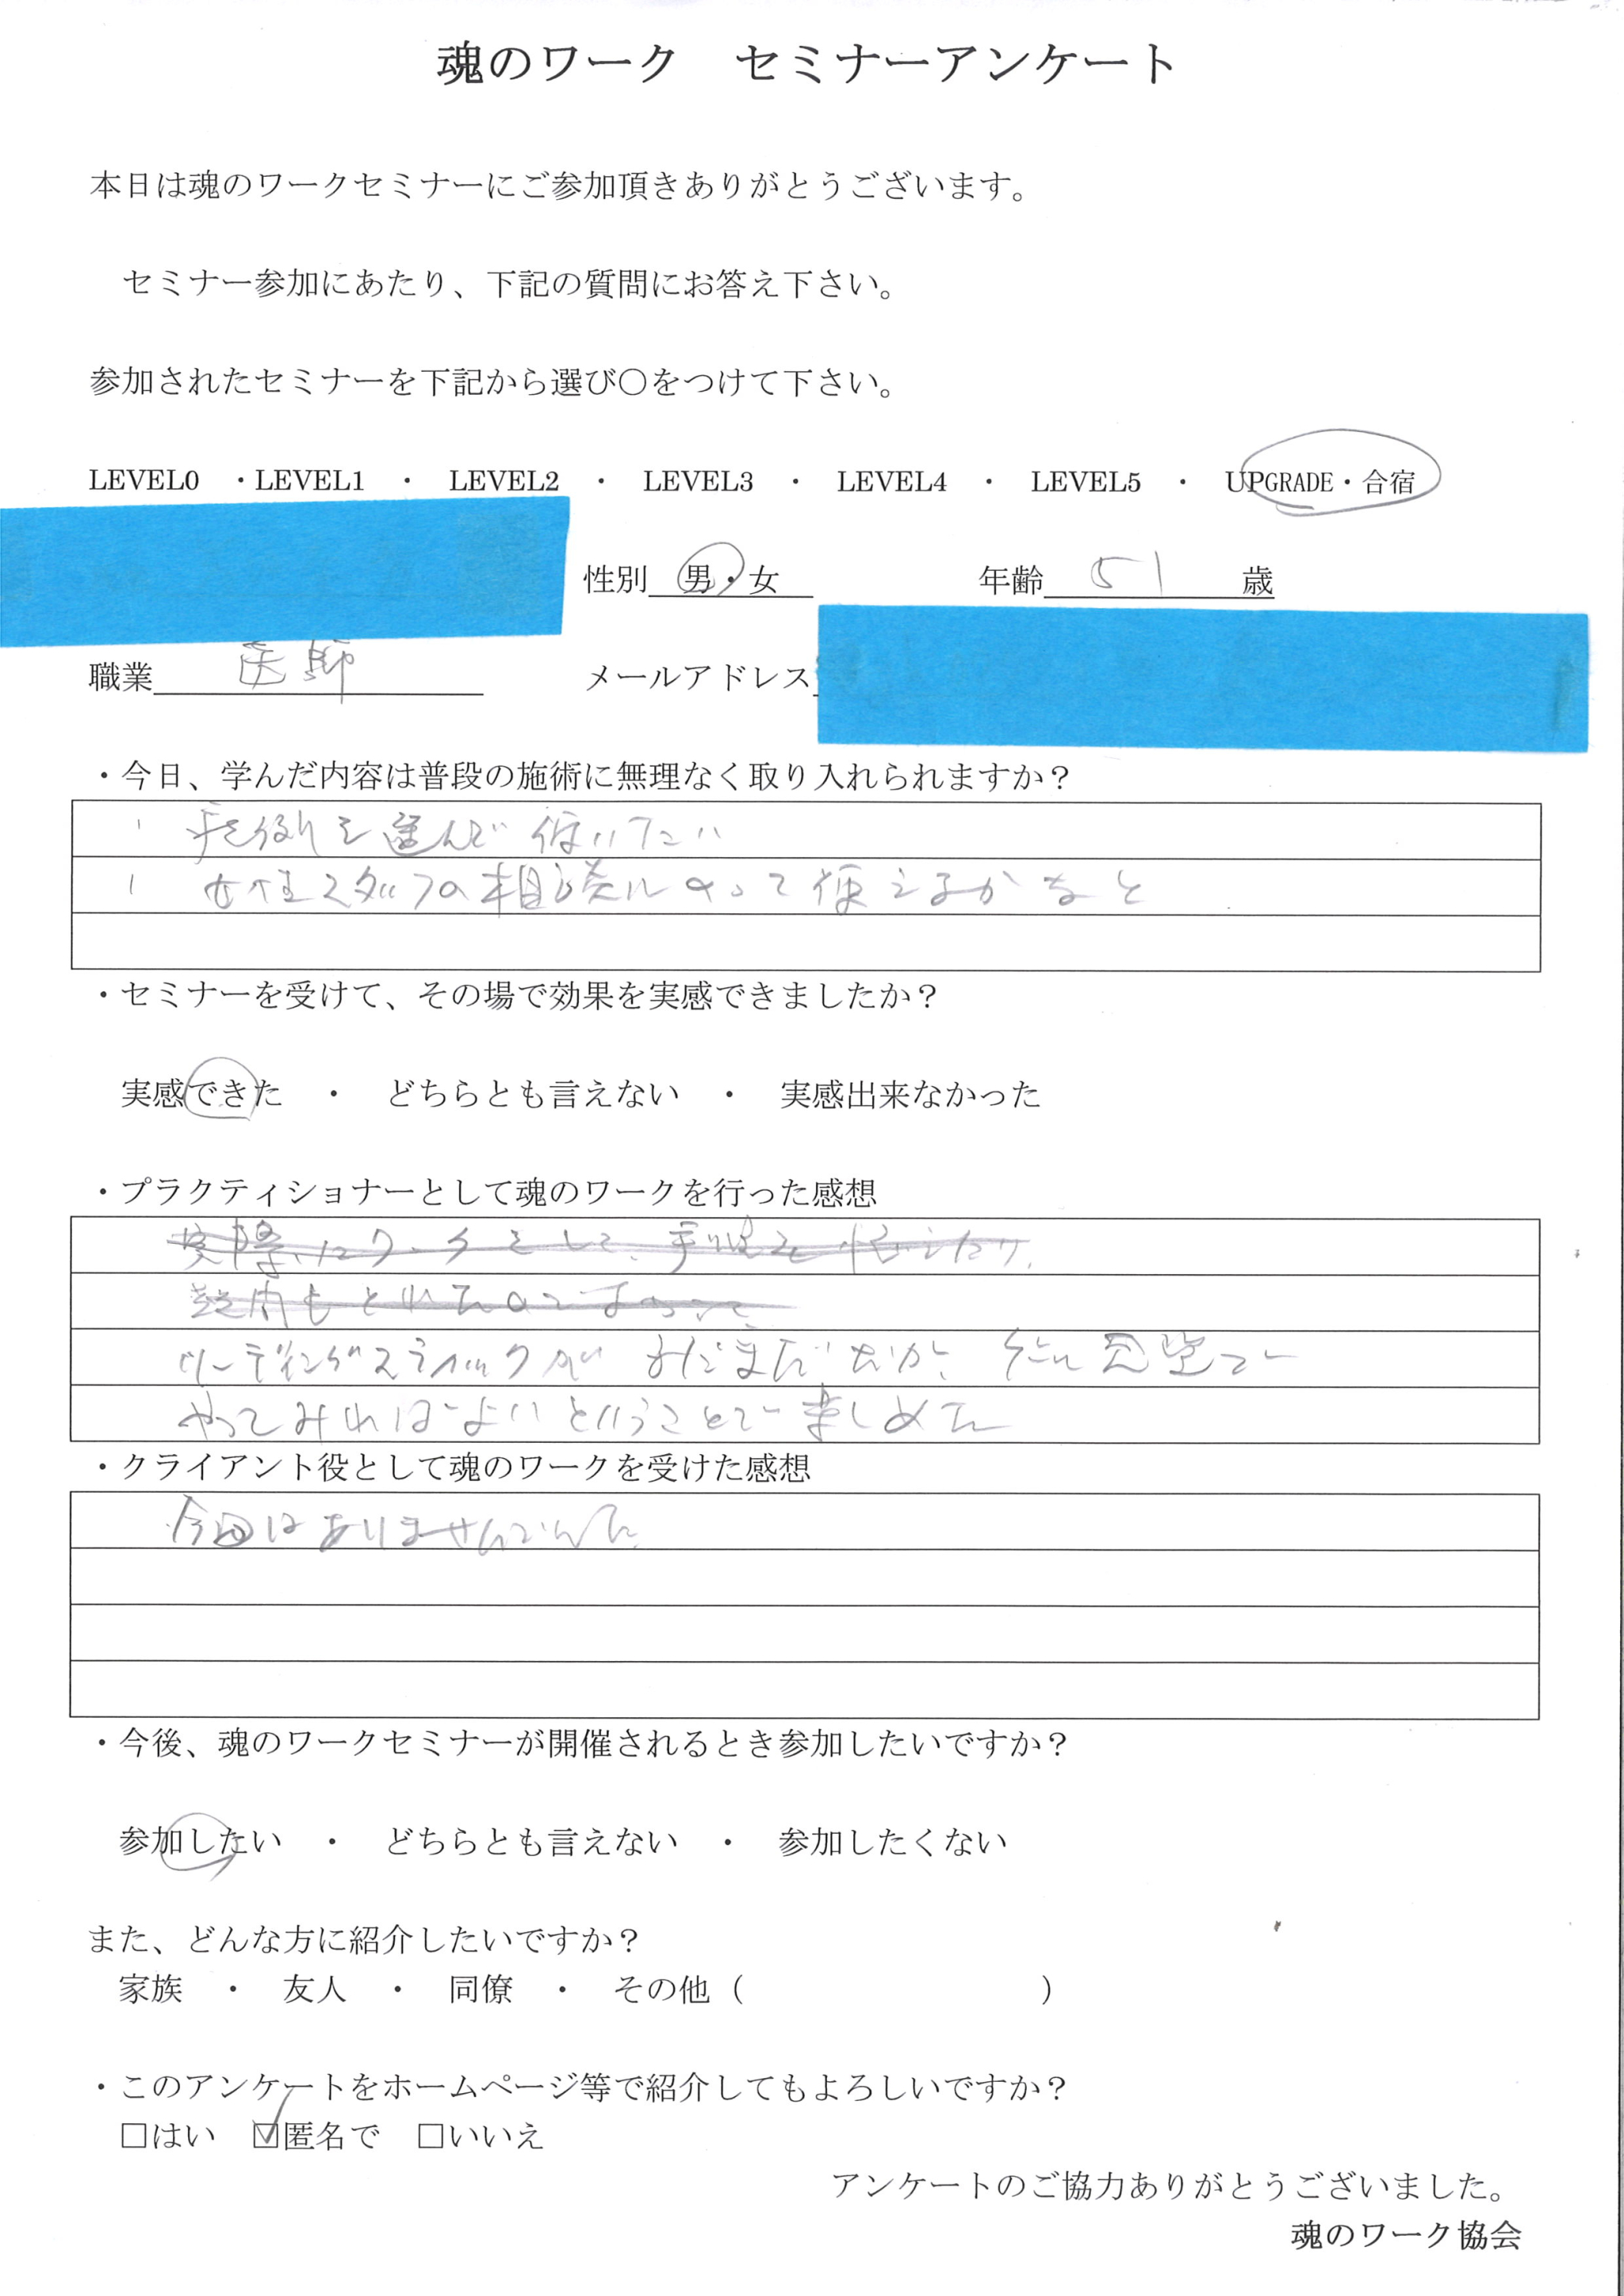 魂のワーク　セミナーアンケート
本日は魂のワークセミナーにご参加頂きありがとうございます。
セミナー参加にあたり、下記の質問にお答え下さい。
参加されたセミナーを下記から選び〇をつけて下さい。
LEVEL0　・LEVEL1　・　LEVEL2　・　LEVEL3　・　LEVEL4　・　LEVEL5　・　UPGRADE・合宿
性別　男・女　　年齢　51　歳
職業　医師　　メールアドレス
・今日、学んだ内容は普段の施術に無理なく取り入れられますか？
症例を選んで使いたい
女性スタッフの相談にのって使えるかなと
・セミナーを受けて、その場で効果を実感できましたか？
実感できた　・　どちらとも言えない　・　実感出来なかった
・プラクティショナーとして魂のワークを行った感想
実際にワークをして、手順を
リーディングスティックが まだまだ だが、
やってみればよいということで楽しめた
・クライアント役として魂のワークを受けた感想
今回はありませんでした
・今後、魂のワークセミナーが開催されるとき参加したいですか？
参加したい　・　どちらとも言えない　・　参加したくない
また、どんな方に紹介したいですか？
家族　・　友人　・　同僚　・　その他（　　　　　　　　　）
・このアンケートをホームページ等で紹介してもよろしいですか？
□はい　☑匿名で　□いいえ
アンケートのご協力ありがとうございました。
魂のワーク協会